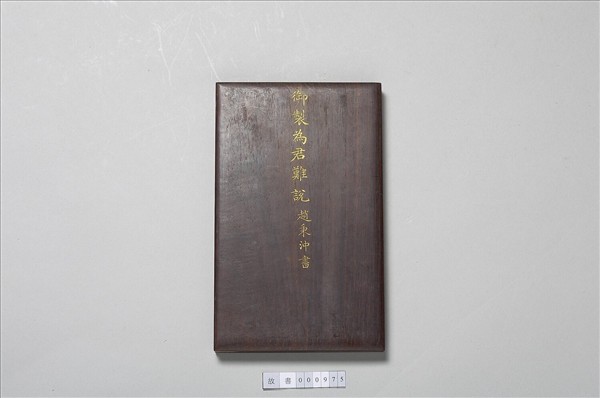 御製為君難說 趙秉沖書
故書000975